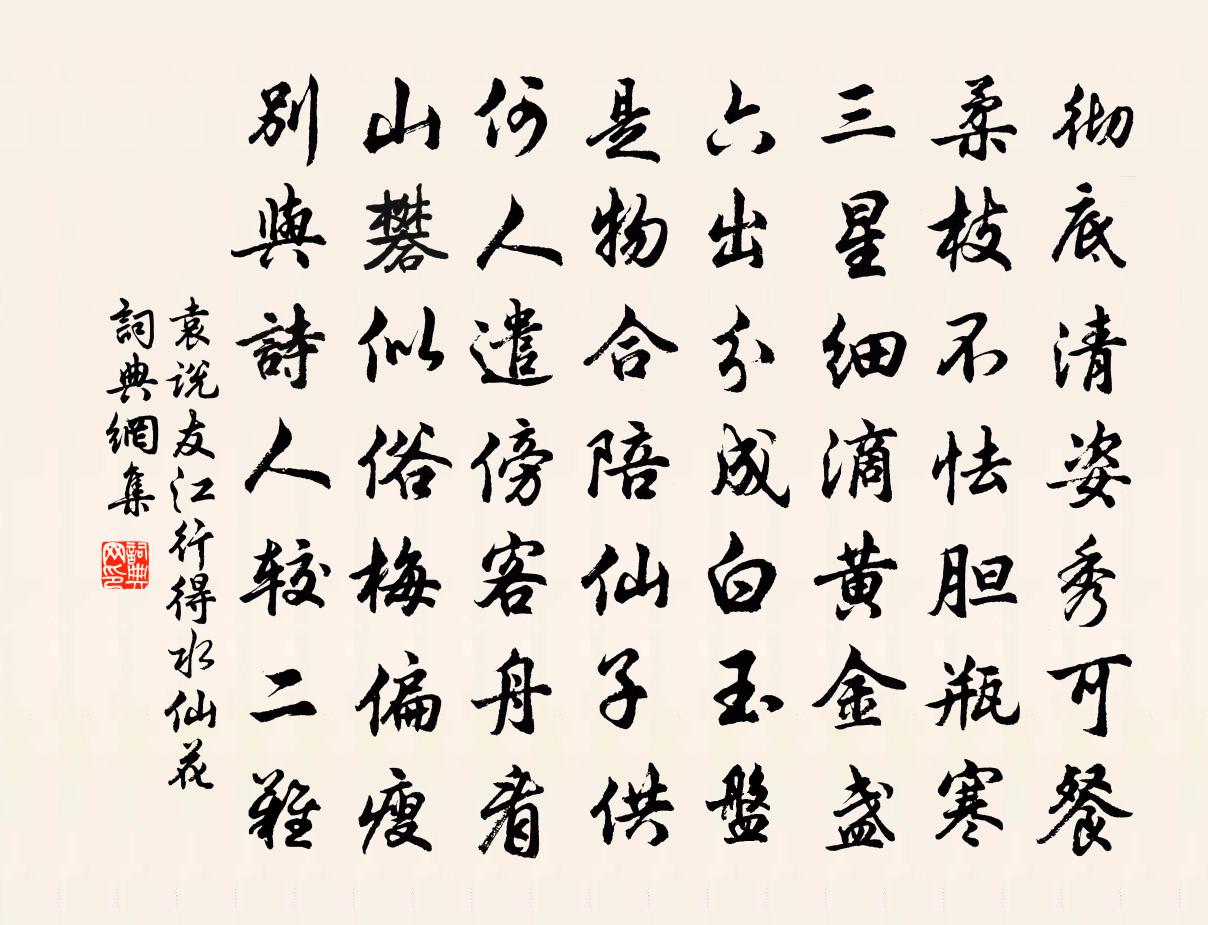 彻底清姿秀可餐
柔枝不怯胆瓶寒
三星细滴黄金盏
六出分成白玉盤
是物合陪仙子供
何人遣傍客舟看
山礬似俗梅偏瘦
別與詩人较二難
袁说友江行得水仙花
詞典網集
詞典网印